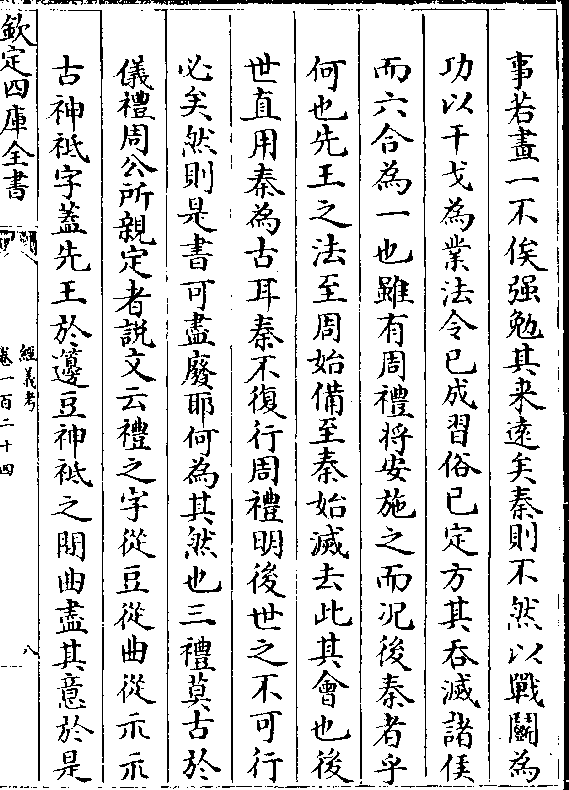 事若畫一不俟强勉其来遠矣秦則不然以戰鬭為
功以干戈為業法令已成習俗已定方其吞滅諸侯
而六合為一也雖有周禮將安施之而况後秦者乎
何也先王之法至周始備至秦始滅去此其會也後
世直用秦為古耳秦不復行周禮明後世之不可行
必矣然則是書可盡廢耶何為其然也三禮莫古於
儀禮周公所親定者説文云禮之字從豆從曲從示示
古神祗字葢先王於籩豆神祗之間曲盡其意於是
欽定四庫全書
經義考
卷一百二十四
八